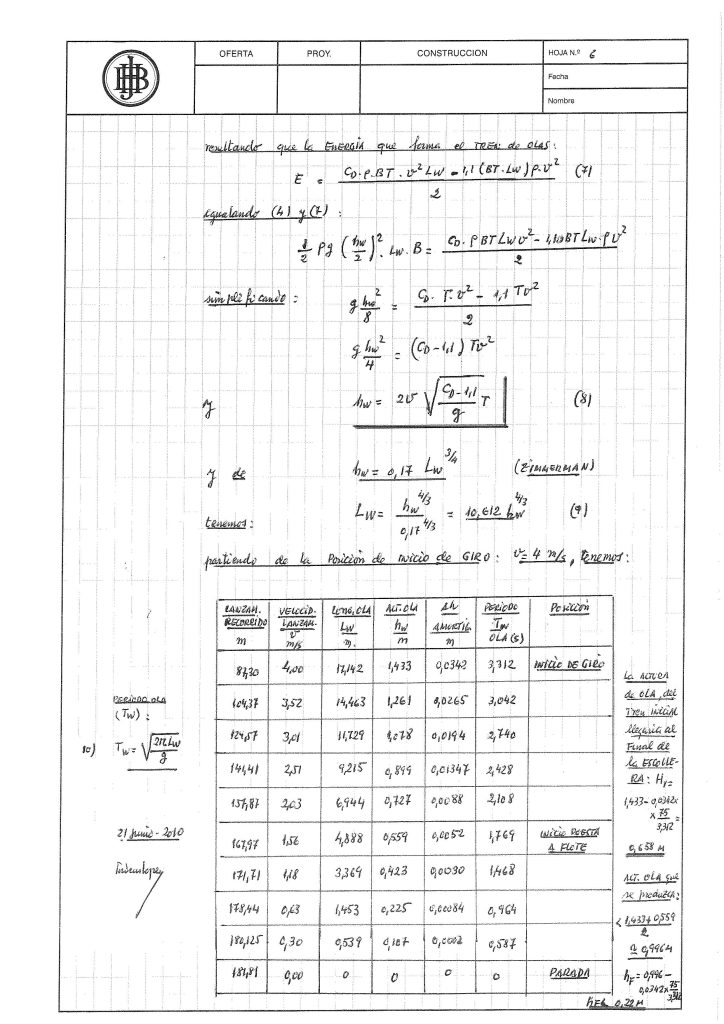 JHB
OFERTA PROY. CONSTRUCCION HOJA N.º 6
Fecha
Nombre
resultando que la ENERGÍA que forma el TREN de OLAS:
E = (C_D·ρ·BT·v² Lw − 1,1 (BT·Lw) ρ·v²) / 2 (7)
igualando (4) y (7):
1/2 ρg (hw/2)² · Lw·B = (C_D·ρ BT Lw v² − 1,10 BT Lw·ρ v²) / 2
simplificando: g hw²/8 = (C_D·T·v² − 1,1 Tv²) / 2
g hw²/4 = (C_D − 1,1) Tv²
y hw = 2v √((C_D − 1,1)/g T) (8)
y de hw = 0,17 Lw^3/4 (ZIMMERMAN)
tenemos: Lw = hw^4/3 / 0,17^4/3 = 10,612 hw^4/3 (9)
partiendo de la Posición de INICIO de GIRO: v = 4 m/s, tenemos:
LANZAM. RECORRIDO m VELOCID. LANZAM. v m/s LONG. OLA Lw m. ALT. OLA hw m Δh AMORTIG. m PERIODO Tw OLA (s) POSICIÓN
87,30 4,00 17,142 1,433 0,0342 3,312 INICIO DE GIRO
104,37 3,52 14,463 1,261 0,0265 3,042
124,57 3,01 11,729 1,078 0,0194 2,740
141,41 2,51 9,215 0,899 0,01347 2,428
157,87 2,03 6,944 0,727 0,0088 2,108
167,97 1,56 4,888 0,559 0,0052 1,769 INICIO PUESTA A FLOTE
171,71 1,18 3,369 0,423 0,0030 1,468
178,44 0,63 1,453 0,225 0,00084 0,964
180,125 0,30 0,539 0,107 0,0002 0,587
181,81 0,00 0 0 0 0 PARADA
PERIODO OLA
(Tw):
10) Tw = √(2π Lw/g)
21 Junio - 2010
La ALTURA
de OLA, del
Tren inicial
llegaría al
Final de
la ESCOLLE-
RA: H₁=
1,433 − 0,0342 x
x 75/3,312 =
0,658 M
ALT. OLA que
se produzca:
< (1,433 + 0,559)/2
≅ 0,996 M
h_F = 0,996 −
0,0342 x 75/3,312
h_F = 0,22 M